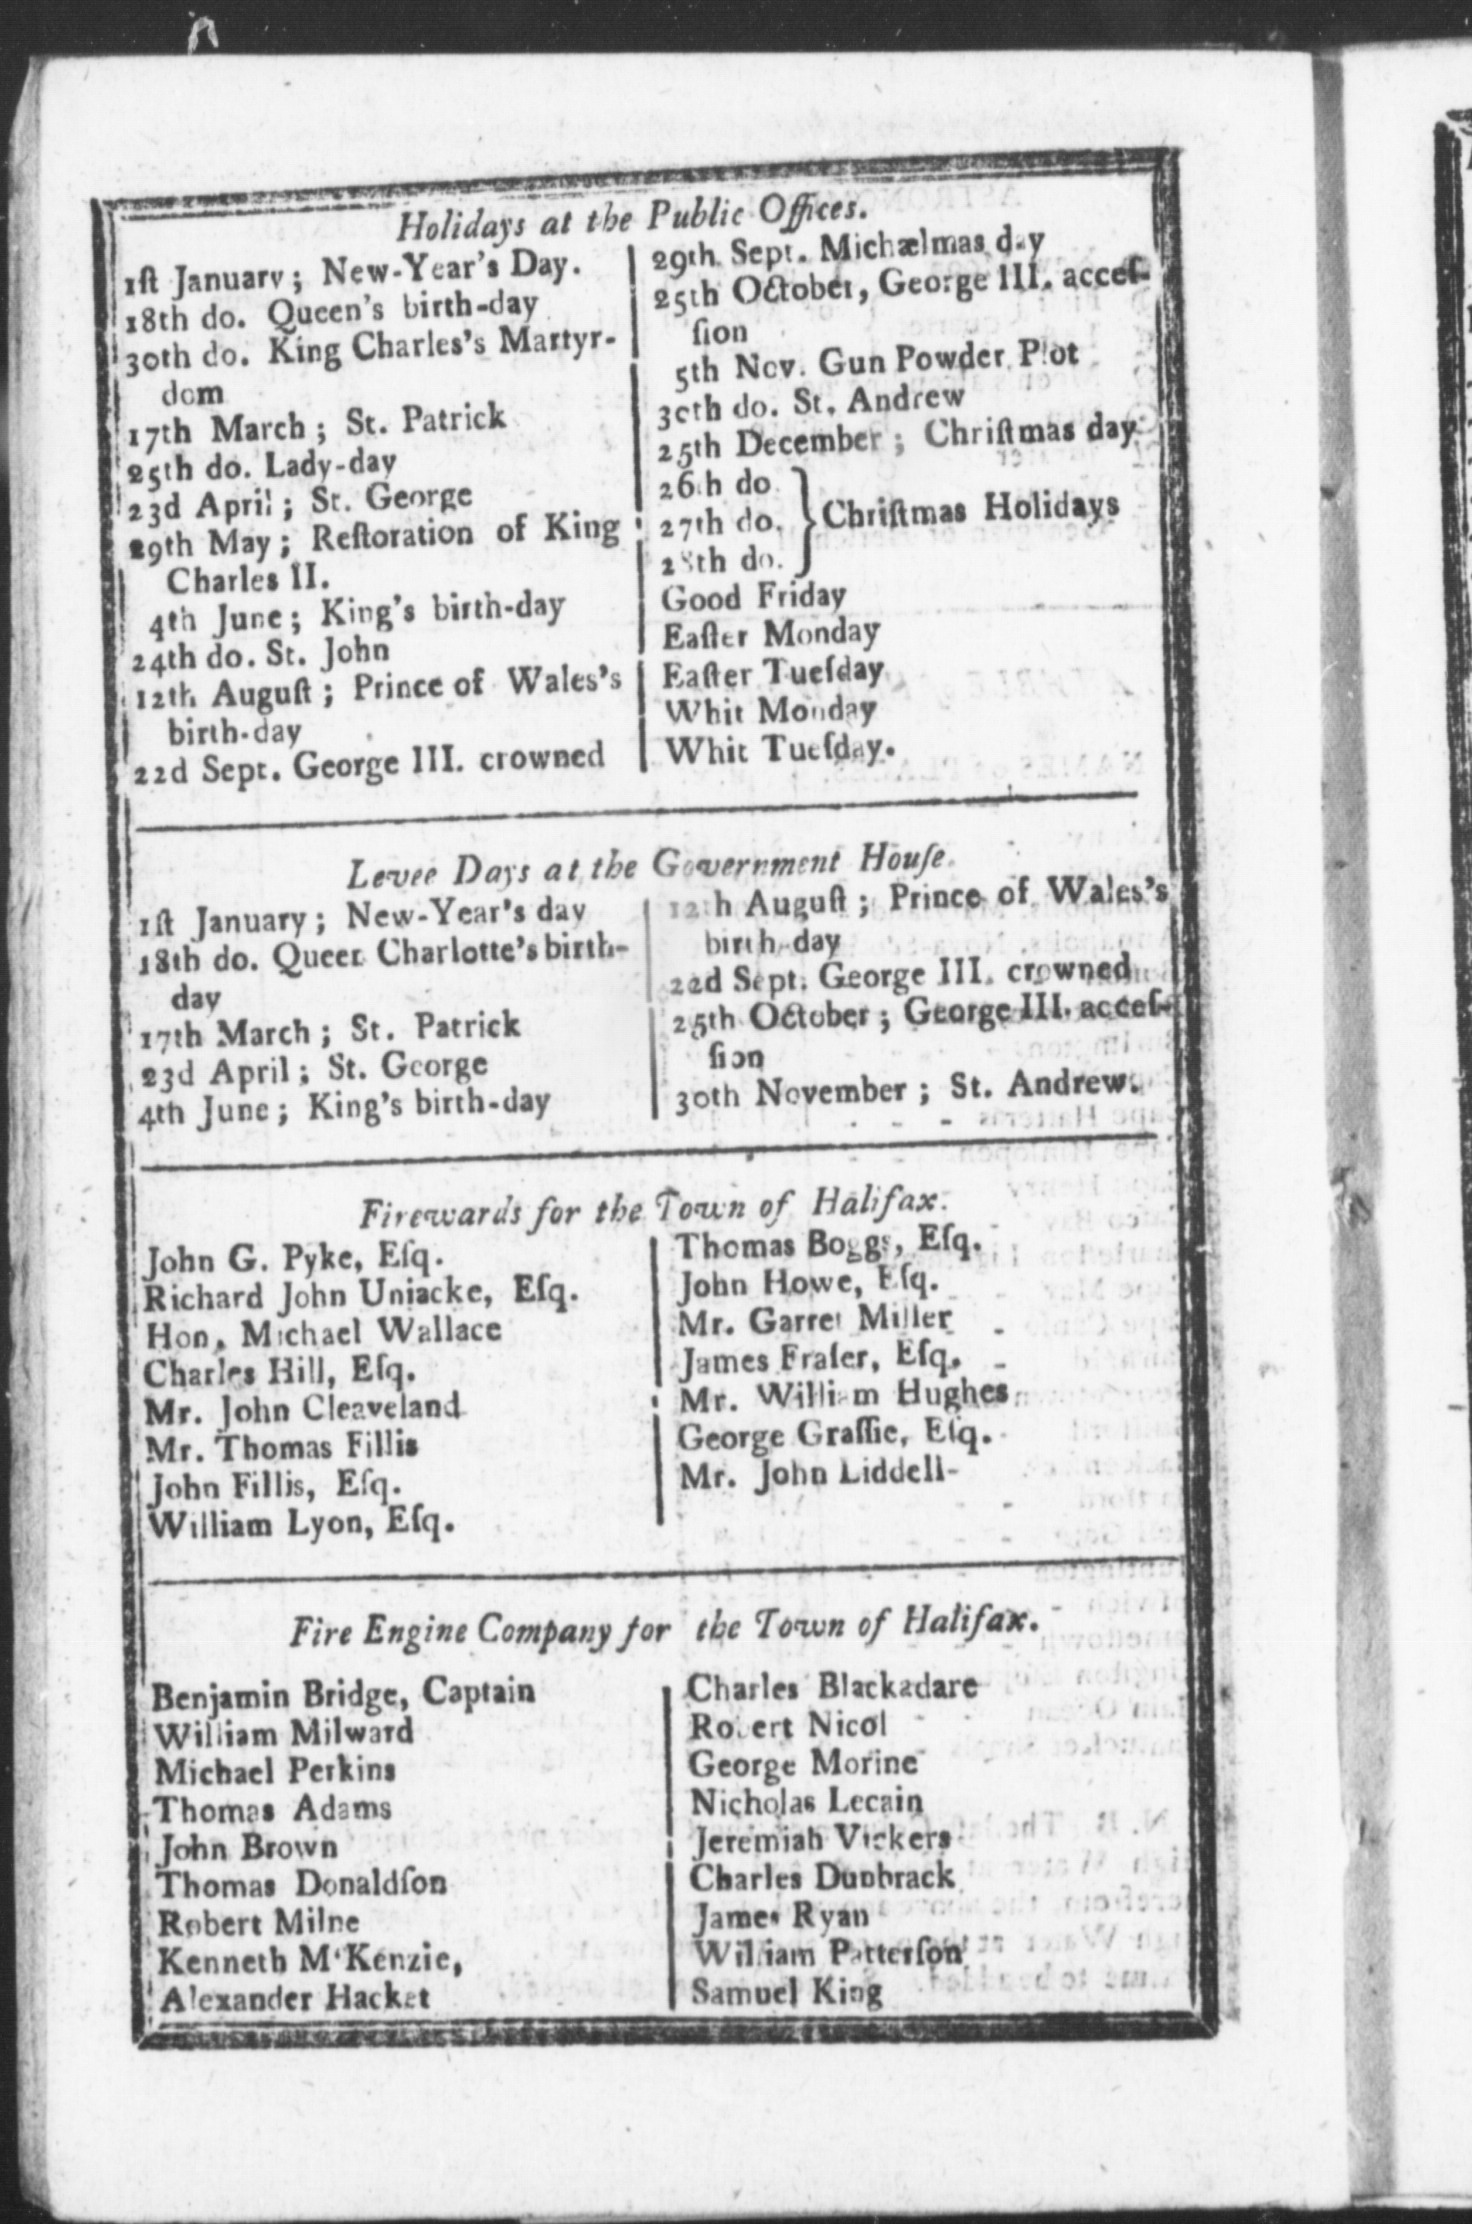 Holidays at the Public Offices.
1ſt January; New-Year's Day.
18th do. Queen's birth-day
30th do. King Charles's Martyr-
dom
17th March; St. Patrick
25th do. Lady-day
23d April; St. George
29th May; Reſtoration of King
Charles II.
4th June; King's birth-day
24th do. St. John
12th Auguſt; Prince of Wales's
birth-day
22d Sept. George III. crowned
29th Sept. Michælmas day
25th October, George III. acceſ-
ſion
5th Nov. Gun Powder Plot
30th do. St. Andrew
25th December; Chriſtmas day
26th do.
27th do. } Chriſtmas Holidays
28th do.
Good Friday
Eaſter Monday
Eaſter Tueſday
Whit Monday
Whit Tueſday.
Levee Days at the Government Houſe.
1ſt January; New-Year's day
18th do. Queen Charlotte's birth-
day
17th March; St. Patrick
23d April; St. George
4th June; King's birth-day
12th Auguſt; Prince of Wales's
birth-day
22d Sept. George III. crowned
25th October; George III. acceſ-
ſion
30th November; St. Andrew.
Firewards for the Town of Halifax.
John G. Pyke, Eſq.
Richard John Uniacke, Eſq.
Hon. Michael Wallace
Charles Hill, Eſq.
Mr. John Cleaveland
Mr. Thomas Fillis
John Fillis, Eſq.
William Lyon, Eſq.
Thomas Boggs, Eſq.
John Howe, Eſq.
Mr. Garret Miller
James Fraſer, Eſq.
Mr. William Hughes
George Graſſie, Eſq.
Mr. John Liddell
Fire Engine Company for the Town of Halifax.
Benjamin Bridge, Captain
William Milward
Michael Perkins
Thomas Adams
John Brown
Thomas Donaldſon
Robert Milne
Kenneth M'Kenzie,
Alexander Hacket
Charles Blackadare
Robert Nicol
George Morine
Nicholas Lecain
Jeremiah Vickers
Charles Dunbrack
James Ryan
William Patterſon
Samuel King